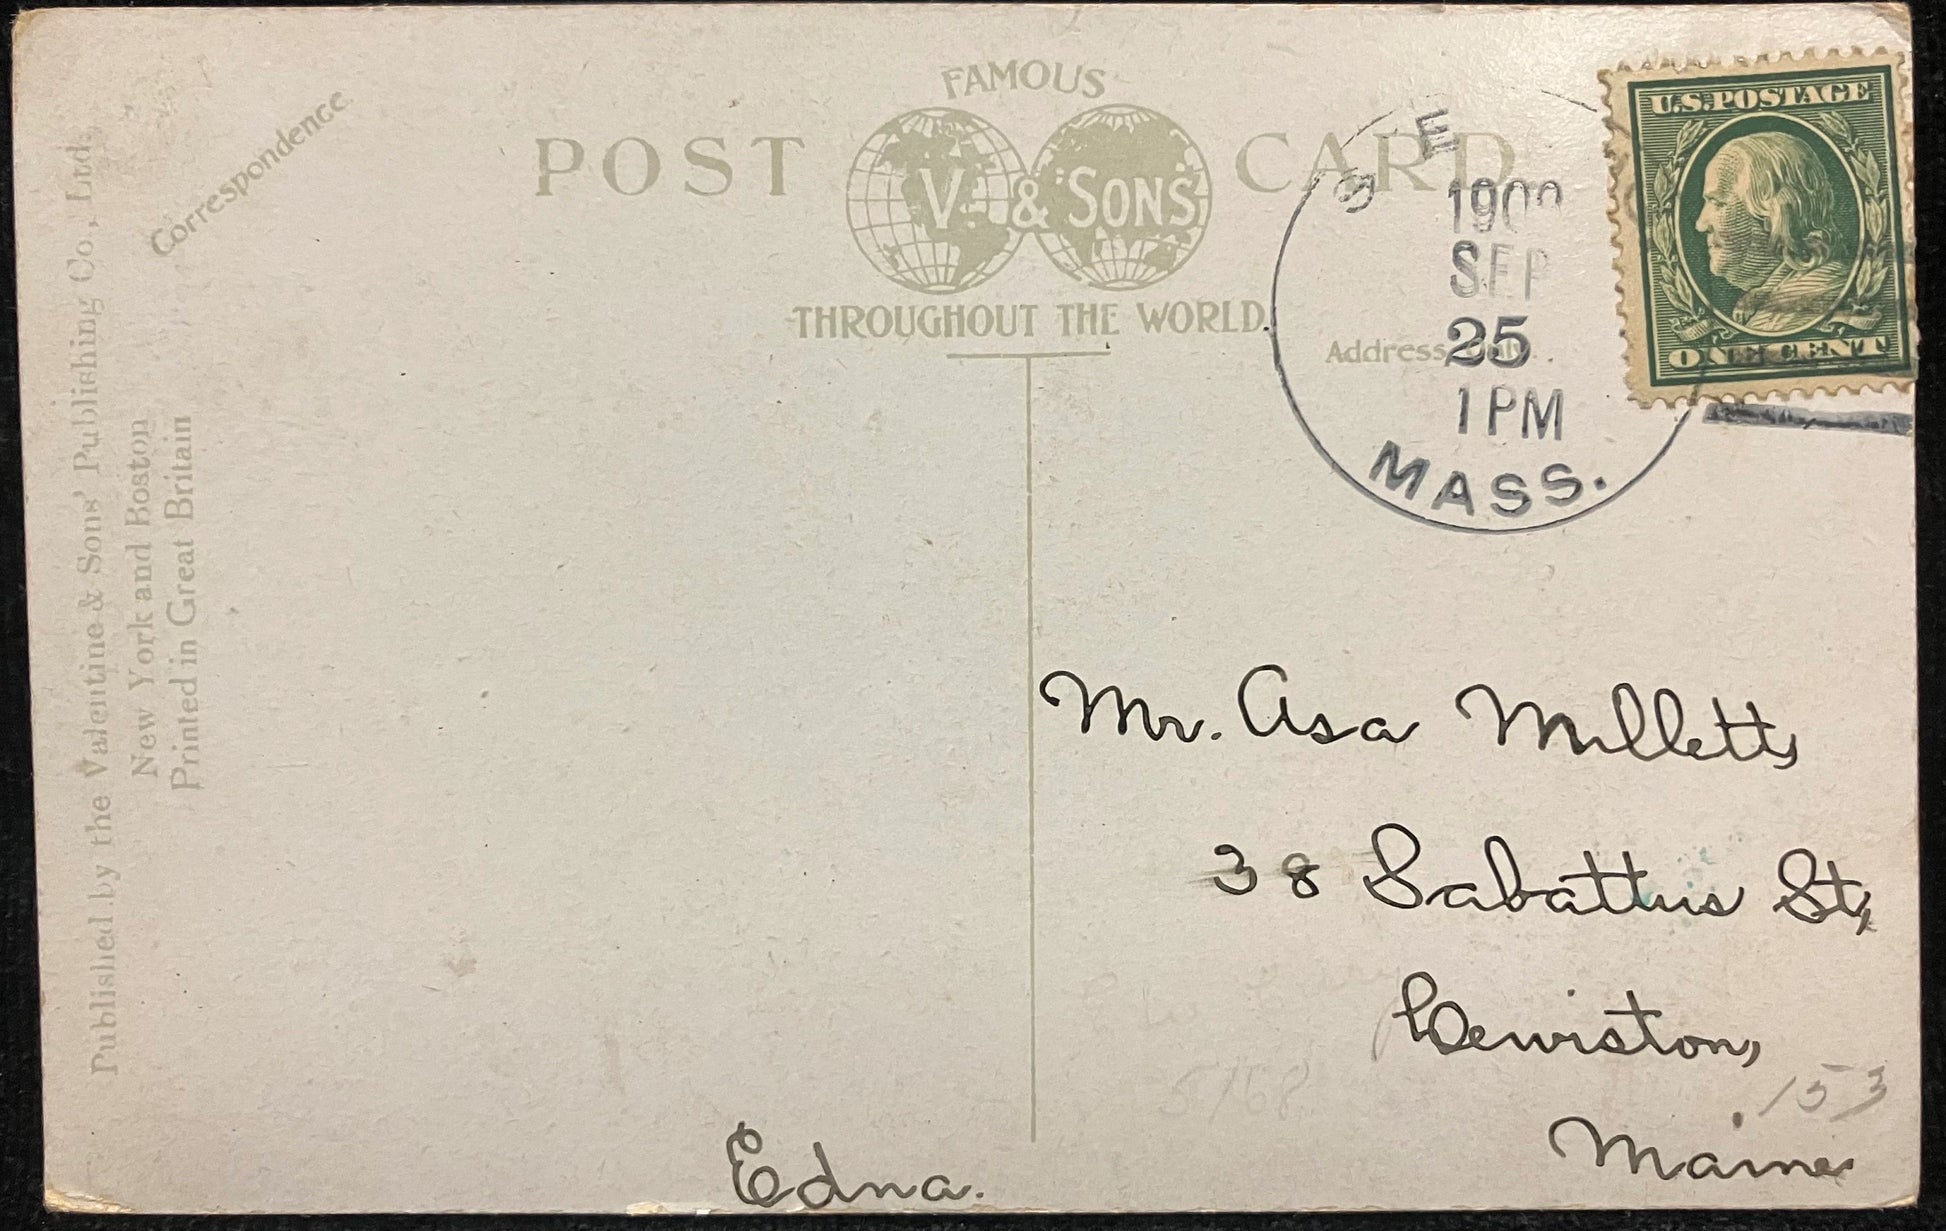 Published by the Valentine & Sons' Publishing Co., Ltd.
New York and Boston
Printed in Great Britain
Correspondence.
FAMOUS
POST CARD
V & SONS
THROUGHOUT THE WORLD.
Address only.
U.S. POSTAGE
ONE CENT
SEP
25
1 PM
MASS.
Mr. Asa Millett,
38 Sabattus St,
Lewiston,
Maine
153
5168
Edna.